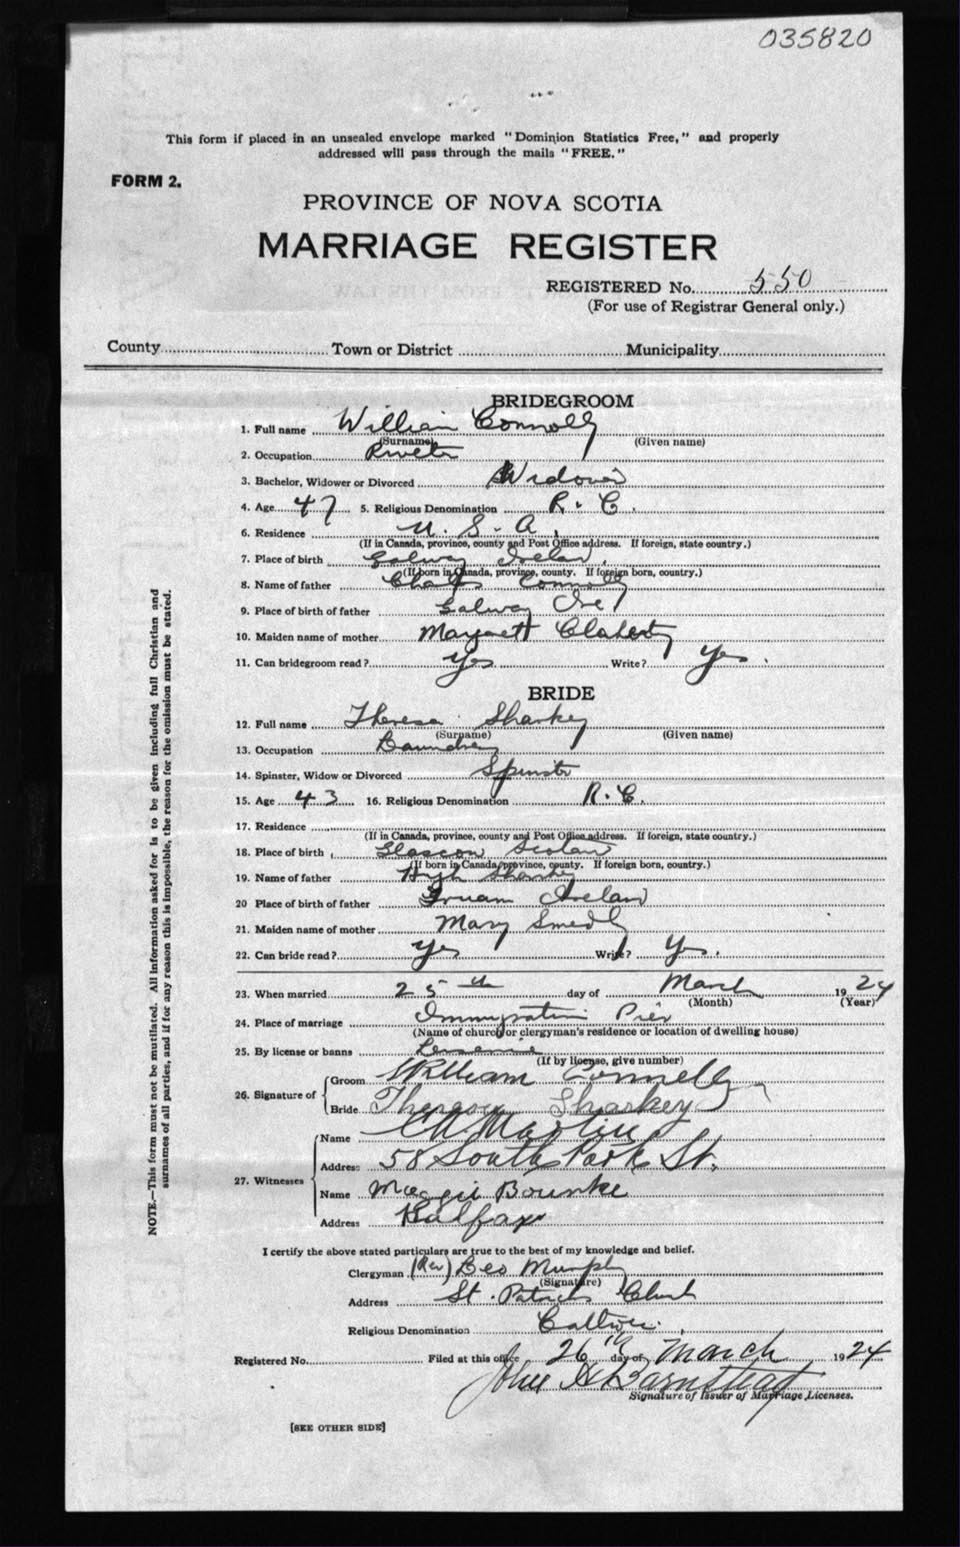 035820
This form if placed in an unsealed envelope marked "Dominion Statistics Free," and properly
addressed will pass through the mails "FREE."
FORM 2.
PROVINCE OF NOVA SCOTIA
MARRIAGE REGISTER
REGISTERED No. 550
(For use of Registrar General only.)
County Town or District Municipality
BRIDEGROOM
1. Full name William Connolly
(Surname) (Given name)
2. Occupation
3. Bachelor, Widower or Divorced Widower
4. Age 47 5. Religious Denomination R. C.
6. Residence U. S. A.
(If in Canada, province, county and Post Office address. If foreign, state country.)
7. Place of birth Galway Ireland
(If born in Canada, province, county. If foreign born, country.)
8. Name of father Charles Connolly
9. Place of birth of father Galway Ire
10. Maiden name of mother Margarett Claherty
11. Can bridegroom read? Yes Write? Yes.
BRIDE
12. Full name Theresa Sharkey
(Surname) (Given name)
13. Occupation Laundry
14. Spinster, Widow or Divorced Spinster
15. Age 43 16. Religious Denomination R. C.
17. Residence
(If in Canada, province, county and Post Office address. If foreign, state country.)
18. Place of birth Glascow Scotland
(If born in Canada, province, county. If foreign born, country.)
19. Name of father Hugh Sharkey
20 Place of birth of father Ireland
21. Maiden name of mother Mary
22. Can bride read? Yes Write? Yes.
23. When married 25th day of March 1924
(Month) (Year)
24. Place of marriage Immigration Pier
(Name of church or clergyman's residence or location of dwelling house)
25. By license or banns
(If by license, give number)
26. Signature of
Groom William Connolly
Bride Theresa Sharkey
27. Witnesses
Name Martin
Address 58 South Park St.
Name Maggie Bourke
Address Halifax
I certify the above stated particulars are true to the best of my knowledge and belief.
Clergyman (Rev) Leo Murphy
(Signature)
Address St. Patricks Church
Religious Denomination Catholic
Registered No. Filed at this office 26th day of March 1924
John H Barnstead
Signature of Issuer of Marriage Licenses.
[SEE OTHER SIDE]
NOTE.—This form must not be mutilated. All information asked for is to be given including full Christian and
surnames of all parties, and if for any reason this is impossible, the reason for the omission must be stated.